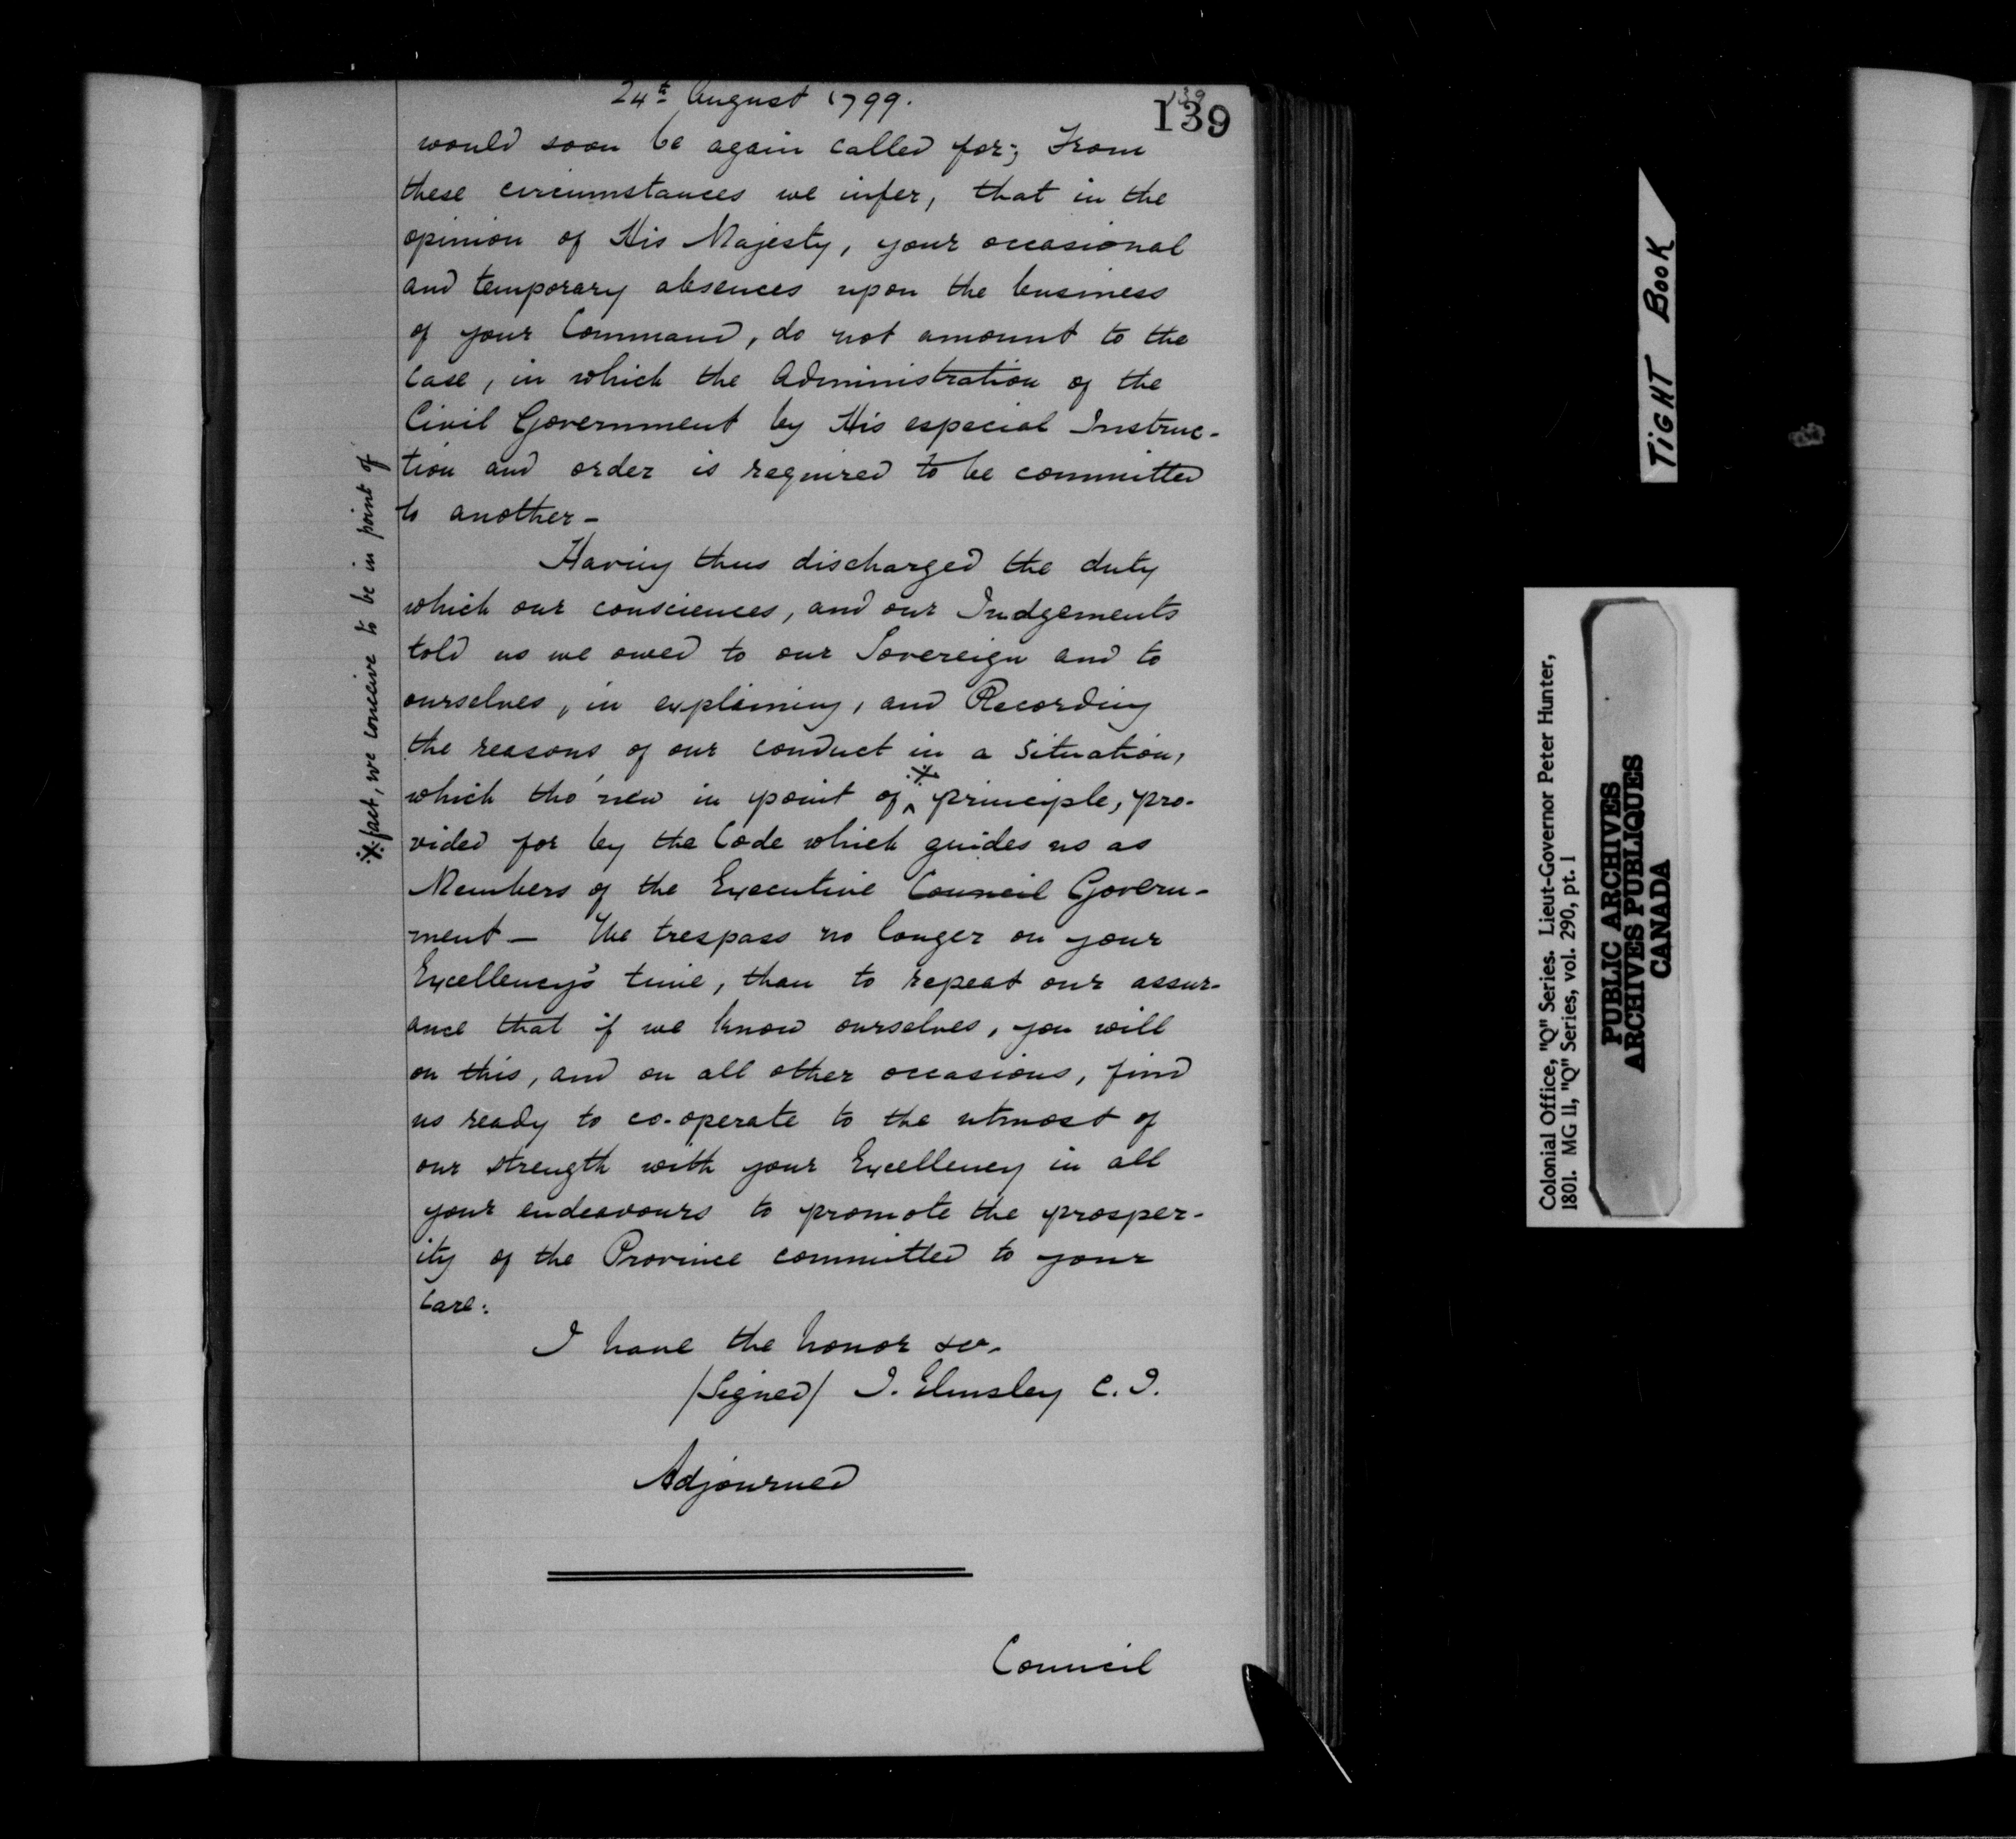 24th August 1799.
139
139
would soon be again called for; From
these circumstances we infer, that in the
opinion of His Majesty, your occasional
and temporary absences upon the business
of your Command, do not amount to the
Case, in which the Administration of the
Civil Government by His especial Instruc-
tion and order is required to be committed
to another -
Having thus discharged the duty
which our consciences, and our Judgements
told us we owed to our Sovereign and to
ourselves, in explaining, and Recording
the reasons of our conduct in a situation,
which tho' new in point of ⁁ principle, pro-
vided for by the Code which guides us as
Members of the Executive Council Govern-
ment - We trespass no longer on your
Excellency's time, than to repeat our assur-
ance that if we know ourselves, you will
on this, and on all other occasions, find
us ready to co-operate to the utmost of
our strength with your Excellency in all
your endeavours to promote the prosper-
ity of the Province committed to your
Care.
I have the honor &c.
/Signed/ J. Elmsley C. J.
Adjourned
Council
fact, we conceive to be in point of
TIGHT BOOK
Colonial Office, "Q" Series. Lieut-Governor Peter Hunter,
1801. MG 11, "Q" Series, vol. 290, pt. 1
PUBLIC ARCHIVES
ARCHIVES PUBLIQUES
CANADA